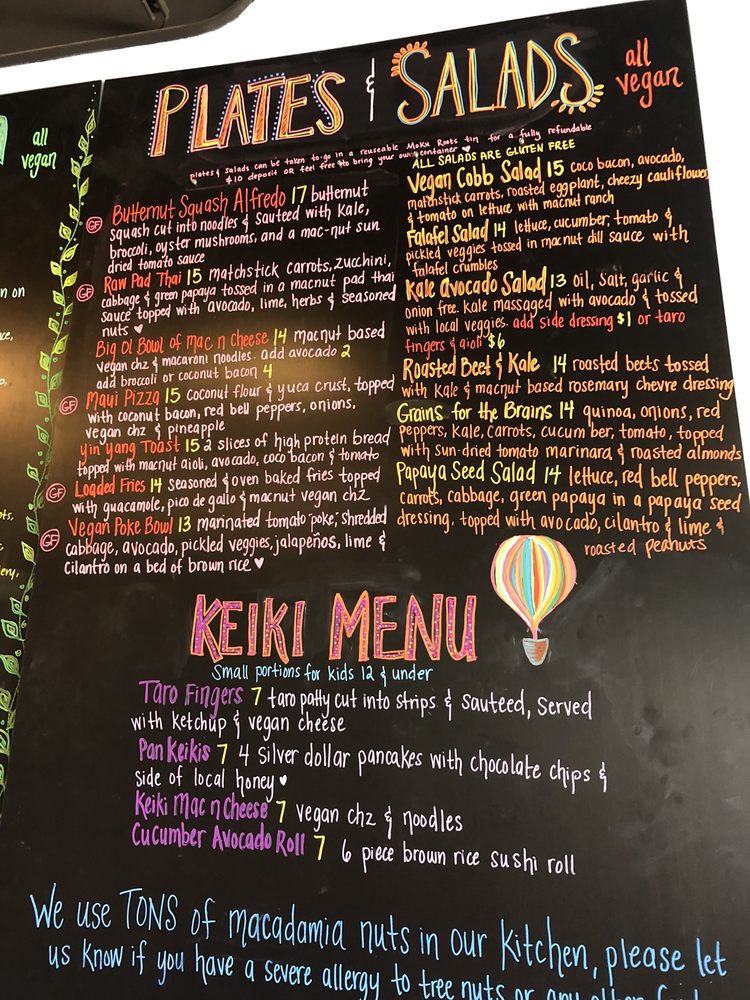 PLATES & SALADS
all
vegan
all
vegan
plates & salads can be taken to-go in a reuseable Moku Roots tin for a fully refundable
$10 deposit or feel free to bring your own container ♥
Butternut Squash Alfredo 17 butternut
GF
squash cut into noodles & sauteed with kale,
broccoli, oyster mushrooms, and a mac-nut sun
dried tomato sauce
Raw Pad Thai 15 matchstick carrots, zucchini,
GF
cabbage & green papaya tossed in a macnut pad thai
sauce topped with avocado, lime, herbs & seasoned
nuts ♥
Big Ol Bowl of Mac n Cheese 14 macnut based
vegan chz & macaroni noodles. add avocado 2
add broccoli or coconut bacon 4
Maui Pizza 15 coconut flour & yuca crust, topped
GF
with coconut bacon, red bell peppers, onions,
vegan chz & pineapple
yin yang Toast 15 2 slices of high protein bread
topped with macnut aioli, avocado, coco bacon & tomato
Loaded Fries 14 seasoned & oven baked fries topped
GF
with guacamole, pico de gallo & macnut vegan chz
Vegan Poke Bowl 13 marinated tomato "poke", shredded
GF
cabbage, avocado, pickled veggies, jalapeños, lime &
cilantro on a bed of brown rice ♥
ALL SALADS ARE GLUTEN FREE
Vegan Cobb Salad 15 coco bacon, avocado,
matchstick carrots, roasted eggplant, cheezy cauliflower
& tomato on lettuce with macnut ranch
Falafel Salad 14 lettuce, cucumber, tomato &
pickled veggies tossed in macnut dill sauce with
falafel crumbles
Kale Avocado Salad 13 oil, salt, garlic &
onion free. Kale massaged with avocado & tossed
with local veggies. add side dressing $1 or taro
fingers & aioli $6
Roasted Beet & Kale 14 roasted beets tossed
with kale & macnut based rosemary chevre dressing
Grains for the Brains 14 quinoa, onions, red
peppers, kale, carrots, cucumber, tomato, topped
with sun-dried tomato marinara & roasted almonds
Papaya Seed Salad 14 lettuce, red bell peppers,
carrots, cabbage, green papaya in a papaya seed
dressing. topped with avocado, cilantro & lime &
roasted peanuts
KEIKI MENU
Small portions for kids 12 & under
Taro Fingers 7 taro patty cut into strips & sauteed, served
with ketchup & vegan cheese
PanKeikis 7 4 silver dollar pancakes with chocolate chips &
side of local honey ♥
Keiki Mac n Cheese 7 vegan chz & noodles
Cucumber Avocado Roll 7 6 piece brown rice sushi roll
We use TONS of macadamia nuts in our kitchen, please let
us know if you have a severe allergy to tree nuts or any other